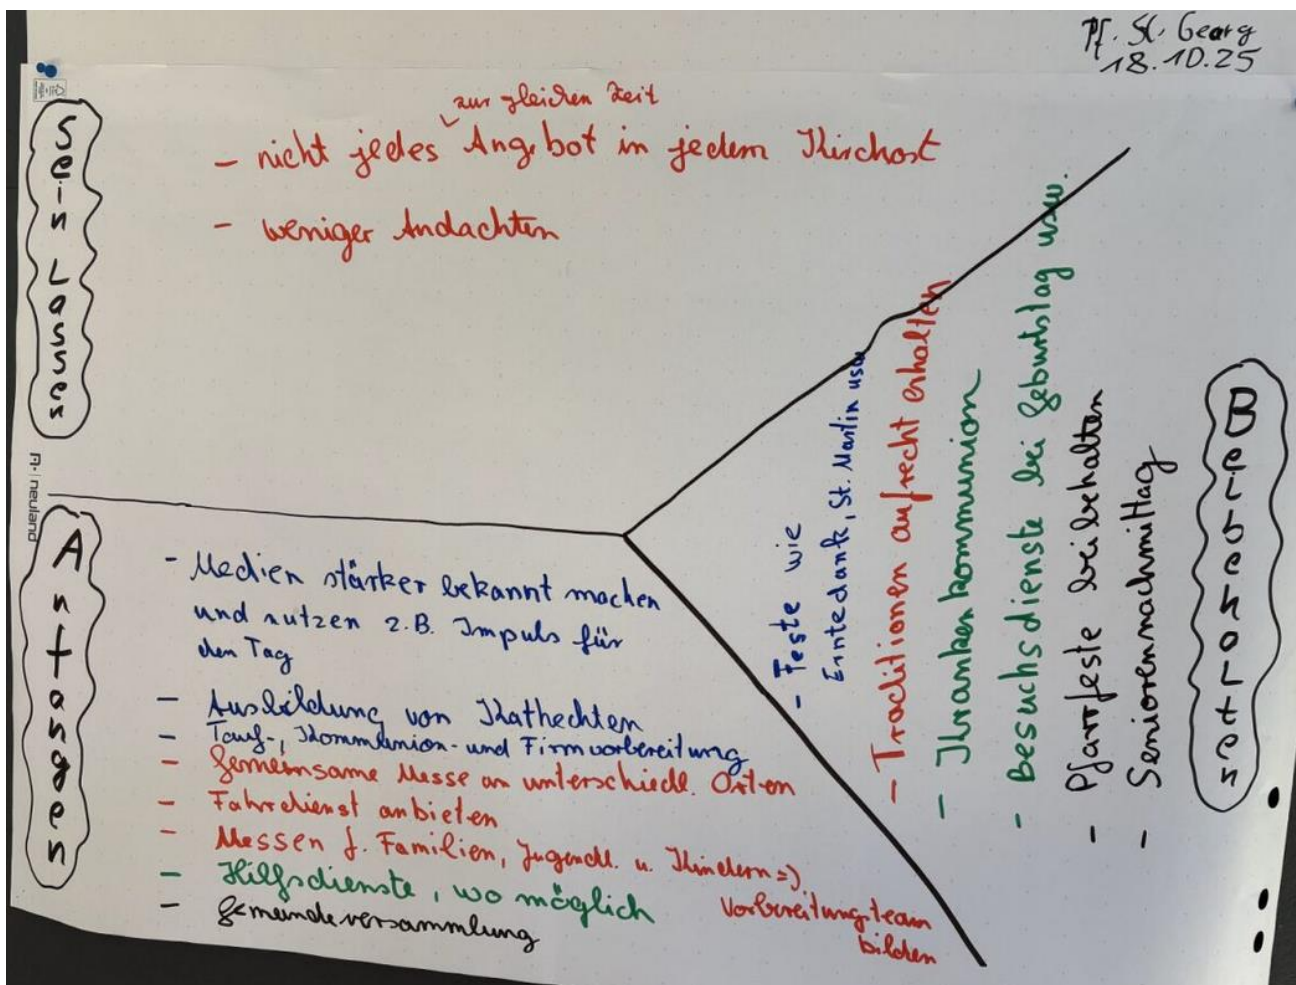 Pf. St. Georg
18.10.25
Sein Lassen
zur gleichen Zeit
- nicht jedes Angebot in jedem Kirchort
- weniger Andachten
neuland
Anfangen
- Medien stärker bekannt machen
und nutzen z.B. Impuls für
den Tag
- Ausbildung von Kathechten
- Tauf-, Kommunion- und Firmvorbereitung
- Gemeinsame Messe an unterschiedl. Orten
- Fahrdienst anbieten
- Messen f. Familien, Jugendl. u. Kindern =>
Vorbereitungsteam
bilden
- Hilfsdienste, wo möglich
- Gemeindeversammlung
Beibehalten
- Feste wie
Erntedank, St. Martin usw
- Traditionen aufrecht erhalten
- Krankenkommunion
- Besuchsdienste bei Geburtstag usw.
- Pfarrfeste beibehalten
- Seniorennachmittag